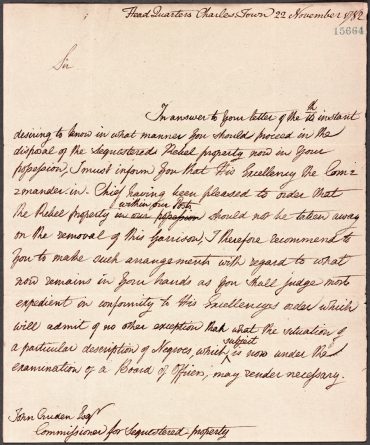 Head Quarters Charles Town 22 November 1782
15664
Sir
In answer to your letter of the instant
desiring to know in what manner you should proceed in the
disposal of the Sequestered Rebel property now in your
possession, I must inform you that His Excellency the Com=
=mander.in. Chief having been pleased to order that
within our Posts
the Rebel property in our possession should not be taken away
on the removal of this Garrison, I therefore recommend to
you to make such arrangements with regard to what
now remains in your hands as you shall judge most
expedient in conformity to His Excellencys order which
will admit of no other exception than what the situation of
a particular description of Negroes, which subject is now under the
examination of a Board of Officers, may render necessary.
John Cruden Esqr
Commissioner for Sequestered property